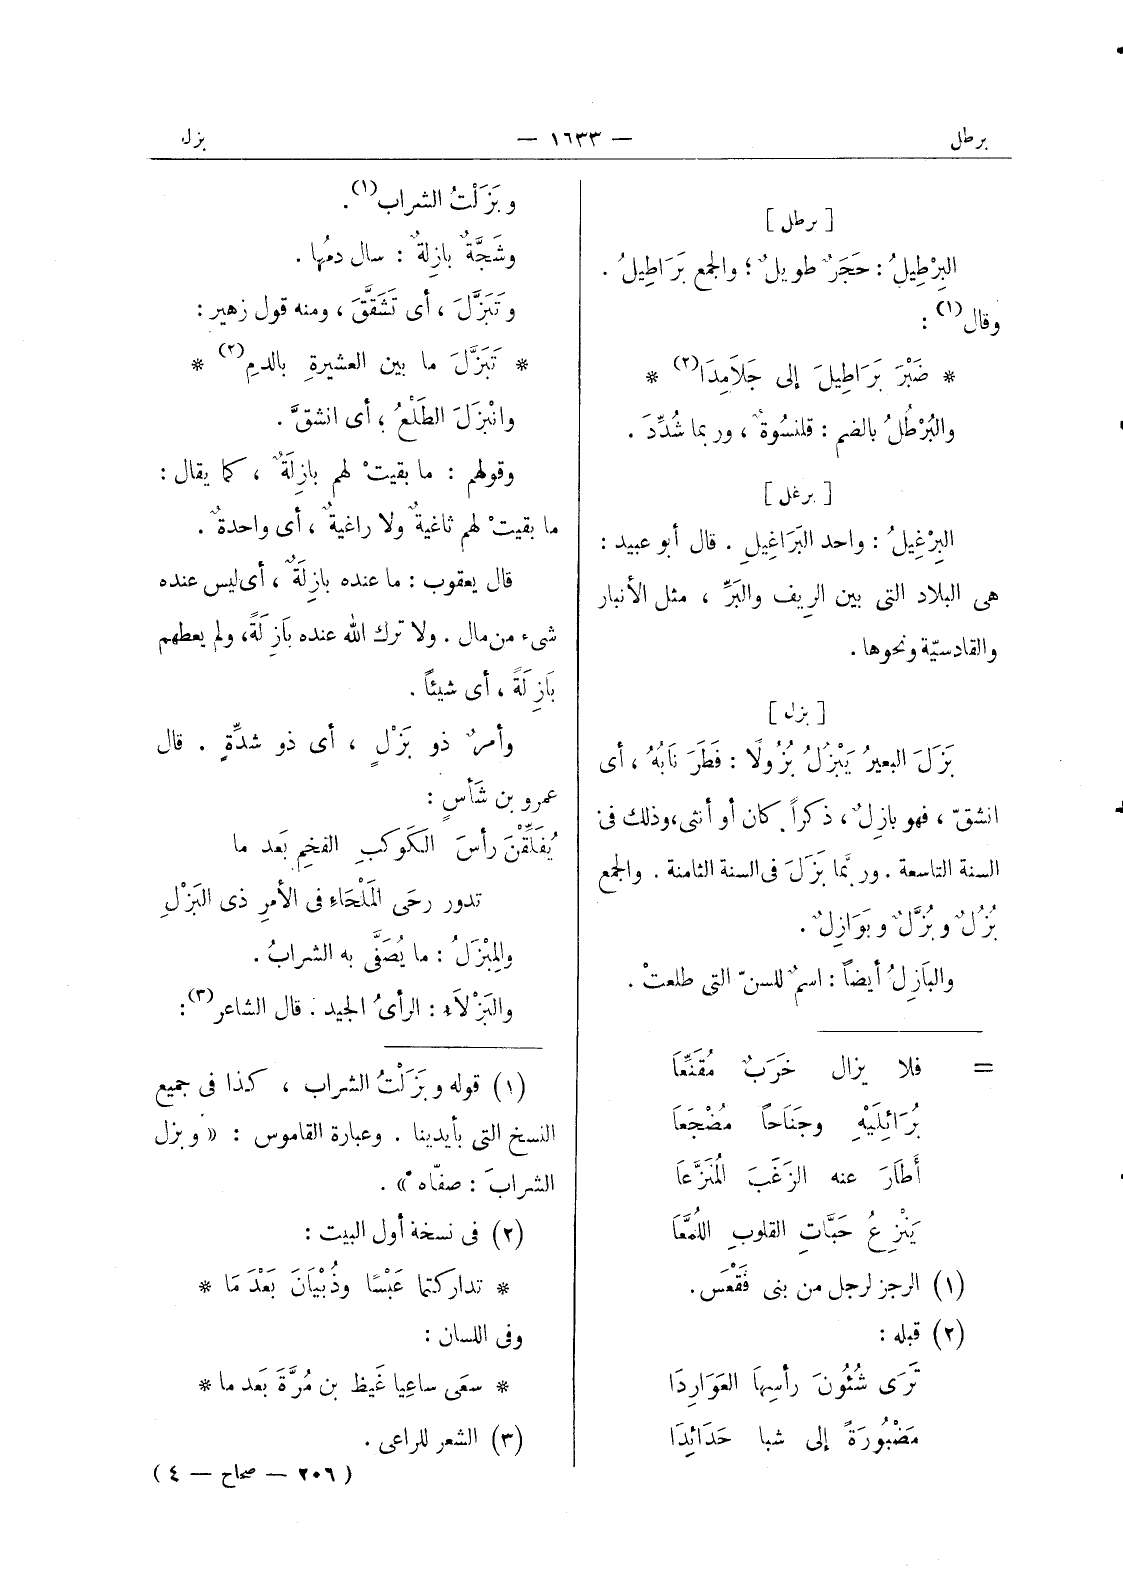 برطل — ١٦٣٣ — بزل
[ برطل ]
البِرْطِيلُ : حَجَرٌ طويلٌ ؛ والجمع بَرَاطِيلُ .
وقال(١) :
* ضَبْرَ بَرَاطِيلَ إلى جَلَامِدَا(٢) *
والبُرْطُلُ بالضم : قلنسُوةٌ ، وربما شُدِّدَ .
[ برغل ]
البِرْغِيلُ : واحد البَرَاغِيلِ . قال أبو عبيد :
هى البلاد التى بين الرِيف والبَرِّ ، مثل الأنبار
والقادسيّة ونحوها .
[ بزل ]
بَزَلَ البعيرُ يَبْزُلُ بُزُولًا : فَطَرَ نَابُهُ ، أى
انشقّ ، فهو بازِلٌ ، ذكراً كان أو أنثى، وذلك فى
السنة التاسعة . وربَّما بَزَلَ فى السنة الثامنة . والجمع
بُزُلٌ وبُزَّلٌ وبَوَازِلٌ .
والبَازِلُ أيضاً : اسمٌ للسنّ التى طلعتْ .
= فلا يزال خَرَبٌ مُقَنِّعَا
بُرَائِلَيْهِ وجَنَاحاً مضْجَعَا
أَطَارَ عنه الزَغَبَ المُنَزَّعَا
يَنْزِعُ حَبَّاتِ القلوبِ اللُمَّعَا
(١) الرجز لرجل من بنى فَقْعَس .
(٢) قبله :
تَرَى شُئُونَ رأسِهَا العَوَارِدَا
مَضْبُورَةً إلى شبا حَدَائِدَا
وبَزَلْتُ الشراب(١) .
وشَجَّةٌ بازِلةٌ : سال دمُها .
وتَبَزَّلَ ، أى تَشَقَّقَ ، ومنه قول زهير :
* تَبَزَّلَ ما بين العشيرةِ بالدمِ(٢) *
وانْبَزَلَ الطَلْعُ ، أى انشقَّ .
وقولهم : ما بقيتْ لهم بازِلَةٌ ، كما يقال :
ما بقيتْ لهم ثاغيةٌ ولا راغيةٌ ، أى واحدةٌ .
قال يعقوب : ما عنده بازِلَةٌ ، أى ليس عنده
شىء من مال . ولا ترك الله عنده بَازِلَةً ، ولم يعطهم
بَازِلَةً ، أى شيئاً .
وأمرٌ ذو بَزْلٍ ، أى ذو شدِّةٍ . قال
عمرو بن شَأسٍ :
يُفَلِّقْنَ رأسَ الكَوكبِ الفخمِ بَعد ما
تدور رحَى المَلْحَاءِ فى الأمرِ ذى البَزْلِ
والمِبْزَلُ : ما يُصَفَّى به الشرابُ .
والبَزْلَاء : الرأىُ الجيد . قال الشاعر(٣) :
(١) قوله وبَزَلْتُ الشراب ، كذا فى جميع
النسخ التى بأيدينا . وعبارة القاموس : « وبزل
الشرابَ : صفّاه » .
(٢) فى نسخة أول البيت :
* تداركتما عَبْسًا وذُبْيَانَ بَعْدَ مَا *
وفى اللسان :
* سعَى ساعِيا غَيظ بن مُرَّةَ بَعد ما *
(٣) الشعر للراعى .
( ٢٠٦ — صحاح — ٤ )